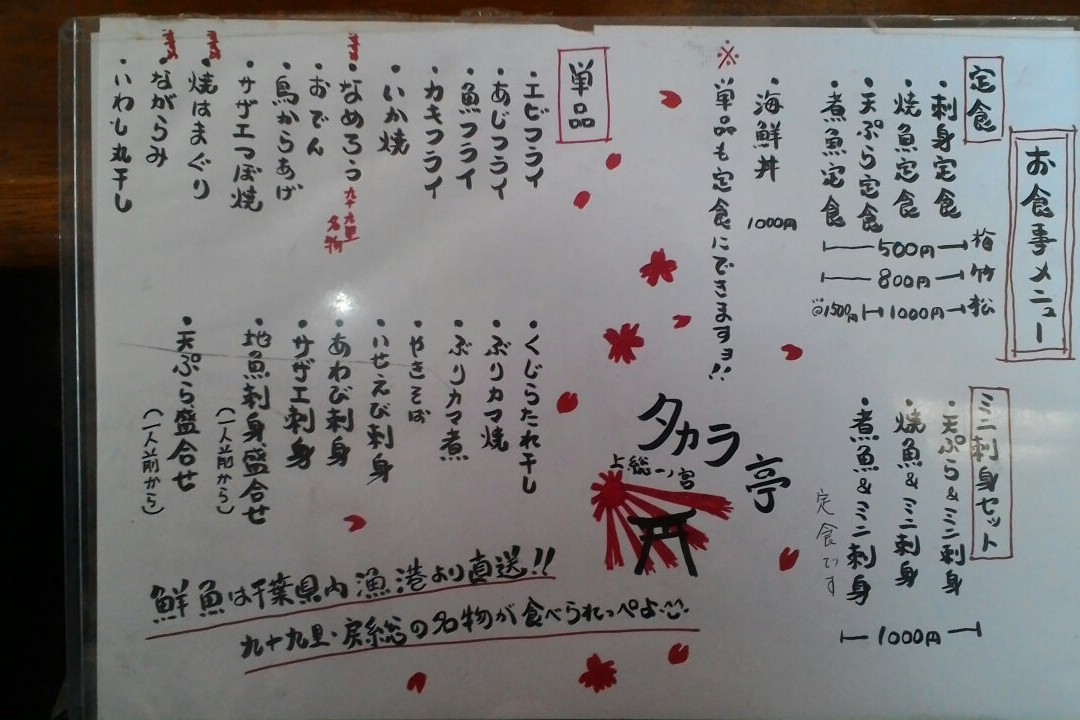 お食事メニュー
定食
・刺身定食
・焼魚定食
・天ぷら定食
・煮魚定食
梅 500円
竹 800円
松 1000円 1500円
海鮮丼 1000円
※単品も定食にできますョ!!
ミニ刺身セット
・天ぷら&ミニ刺身
・焼魚&ミニ刺身
・煮魚&ミニ刺身
定食です
1000円
タカラ亭
上総一ノ宮
単品
・エビフライ
・あじフライ
・魚フライ
・カキフライ
・いか焼
・なめろう 九十九里名物
・おでん
・鳥からあげ
・サザエつぼ焼
・焼はまぐり
・ながらみ
・いわし丸干し
・くじらたれ干し
・ぶりカマ焼
・ぶりカマ煮
・やきそば
・いせえび刺身
・あわび刺身
・サザエ刺身
・地魚刺身盛合せ
(一人前から)
・天ぷら盛合せ
(一人前から)
鮮魚は千葉県内漁港より直送!!
九十九里・房総の名物が食べられっぺよ